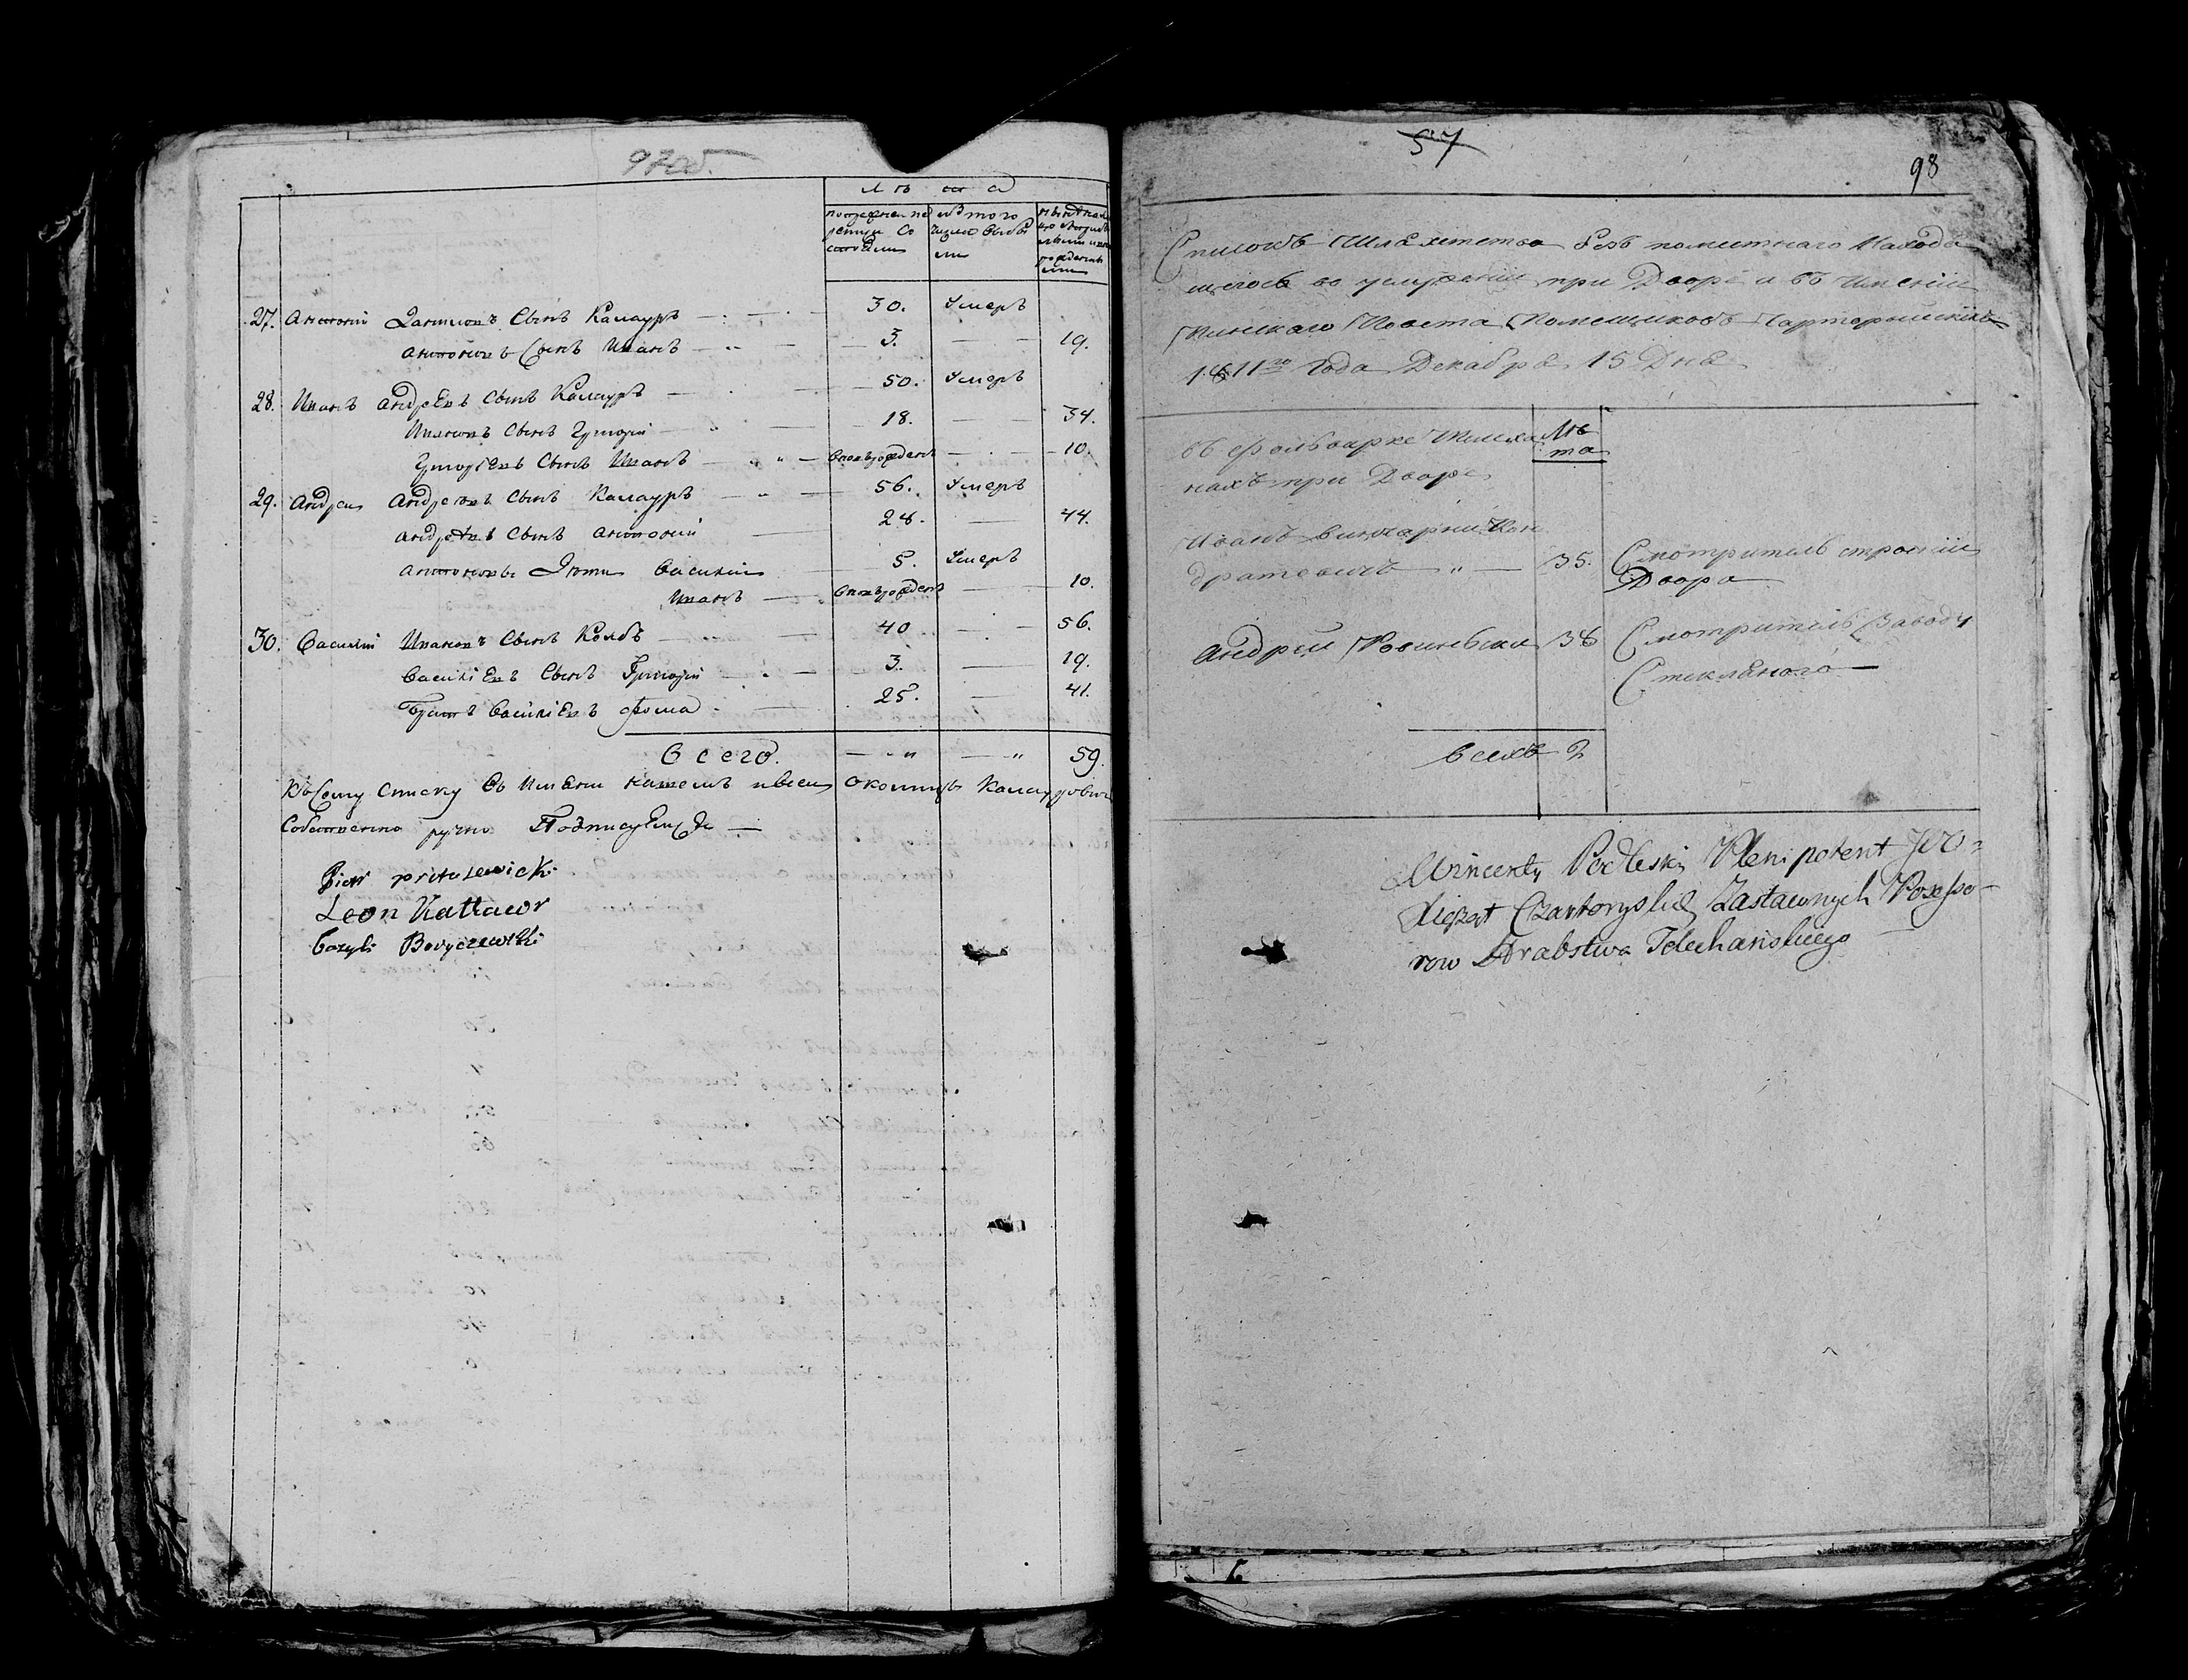 97об.
Лѣта
по прежней ре
визии со
стояли
изъ того
числа выбы
ли
27. Антоній Данилов Сынъ Калауръ 30. Умеръ
Антоновъ Сынъ Иванъ 3. 19.
28. Иванъ Андреевъ Сынъ Калауръ 50. Умеръ
Ивановъ Сынъ Григорій 18. 34.
Григорьевъ Сынъ Иванъ вновьрожденъ 10.
29. Андрей Андреевъ Сынъ Калауръ 56. Умеръ
Андреевъ Сынъ Антоній 28. 44.
Антоновы Дѣти Василий 5. Умеръ
Иванъ вновьрожденъ 10.
30. Василій Ивановъ Сынъ Колбъ 40 56.
Василіевъ Сынъ Григорій 3. 19.
Братъ Василіевъ Фома 25. 41.
Всего. 59.
Къ Сему Списку Въ Имени околицы
Собственно ручно Подписуемся
Piotr Prttulewicki
Leon Kallaur
Bazyli Boryczewski
57
98
Списокъ Шляхетства безъ поместнаго Находя
щегося во услужении при Дворе и въ Имении
Пинскаго Повета Помещиковъ Чарторыйскихъ
1811го Года Декабря 15 Дня
въ фольварке Телеха
нахъ при Дворе
Лѣ
та
Иванъ Кон
дратовичъ 35. Смотритель строении
Двора
Андрей 38 Смотритель Заводу
Стекляного
Всехъ 2
Wincenty Podleski Plenipotent JWO
Xiążąt Czartoryskich Zastawnych Possesso-
row Hrabstwa Telechańskiego